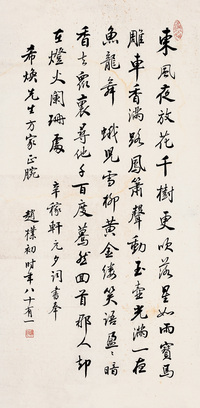 東風夜放花千樹更吹落星如雨寶馬
雕車香滿路鳳簫聲動玉壺光轉一夜
魚龍舞 蛾兒雪柳黃金縷笑語盈盈暗
香去衆裏尋他千百度驀然回首那人却
在燈火闌珊處 辛稼軒元夕詞書奉
希煥先生方家正腕
趙樸初時年八十有一